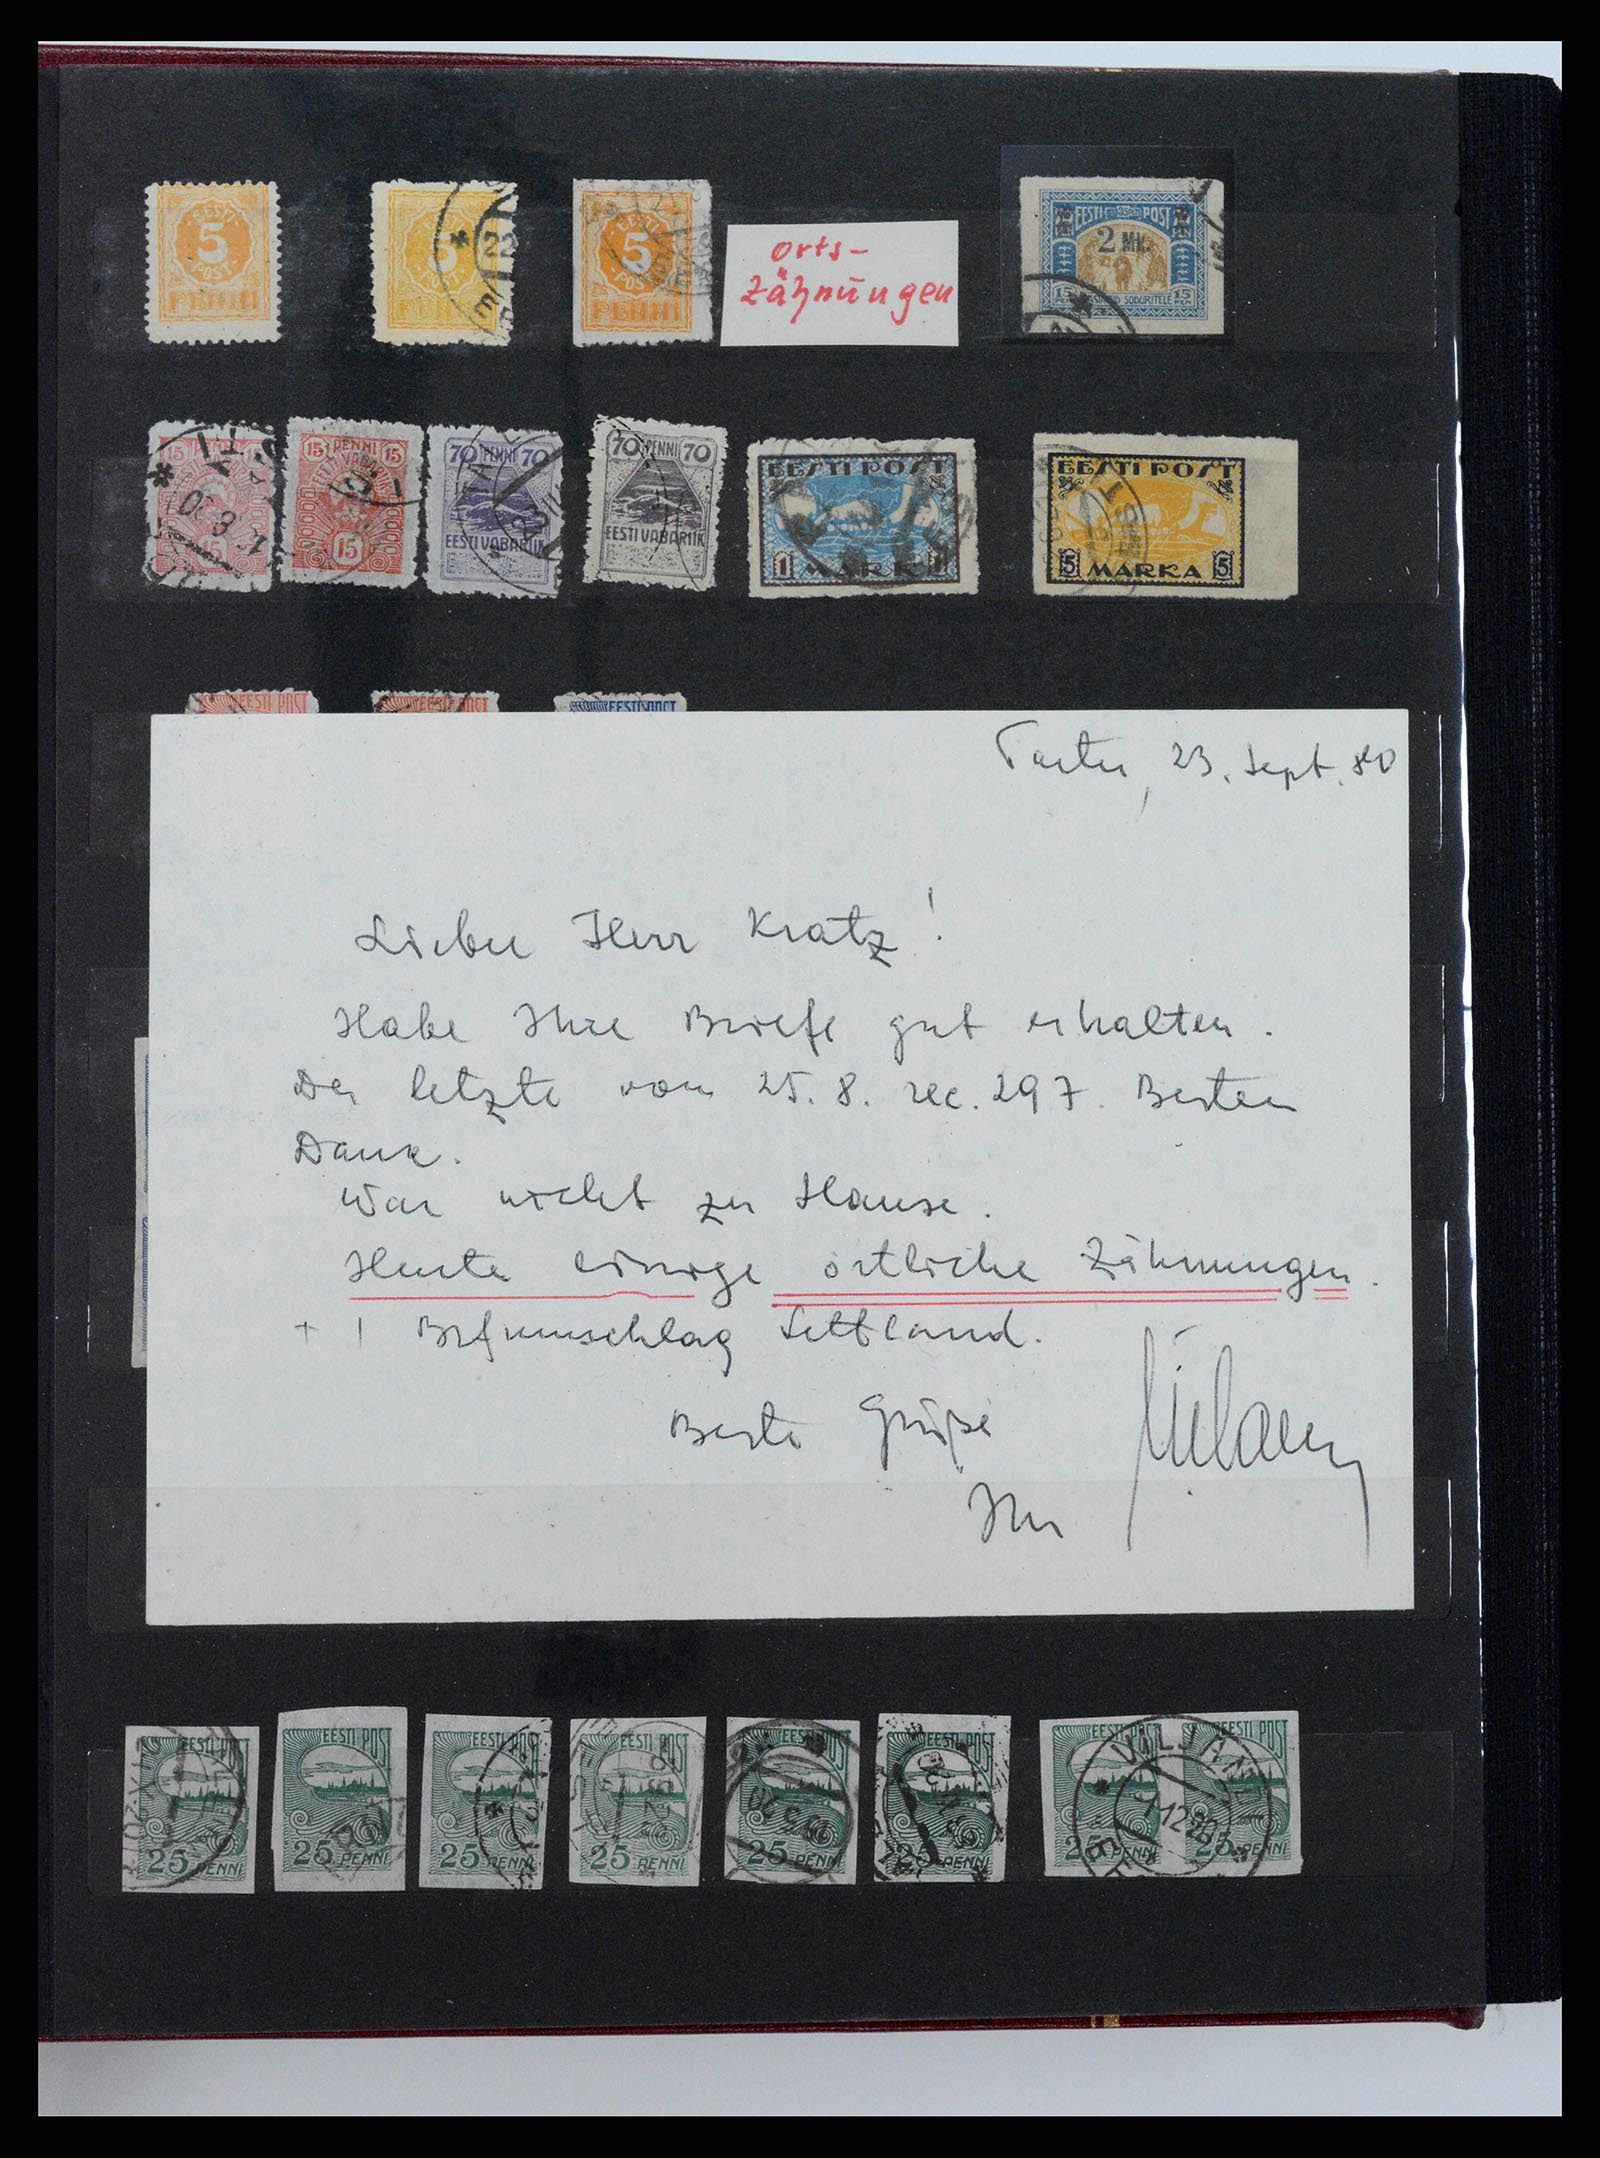 EESTI
5
POST
PENNI
5
POST
PENNI
22
EESTI
5
POST
PENNI
orts-
Zähnungen
EESTI POST
2 MK.
15 PEN SODURITELE 15 PEN
15 15
15
15 PENNI 15
EESTI VABARIIK
15
70 PENNI 70
EESTI VABARIIK
70 PENNI 70
EESTI VABARIIK
EESTI POST
1 MARK 1
EESTI POST
5 MARKA 5
EESTI POST
EESTI POST
EESTI POST
Tartu, 23. Sept. 80
Lieber Herr Kratz!
Habe Ihre Briefe gut erhalten.
Der letzte vom 25. 8. rec. 297. Besten
Dank.
War nicht zu Hause.
Heute einige örtliche Zähnungen.
+ 1 Brfumschlag Lettland.
Beste Grüße
Ihr
EESTI POST
25 PENNI
EESTI POST
25 PENNI
EESTI POST
25 PENNI
EESTI POST
25 PENNI
EESTI POST
25 PENNI
EESTI POST
25 PENNI
EESTI POST
25 PENNI
EESTI POST
25 PENNI
VILJANDI